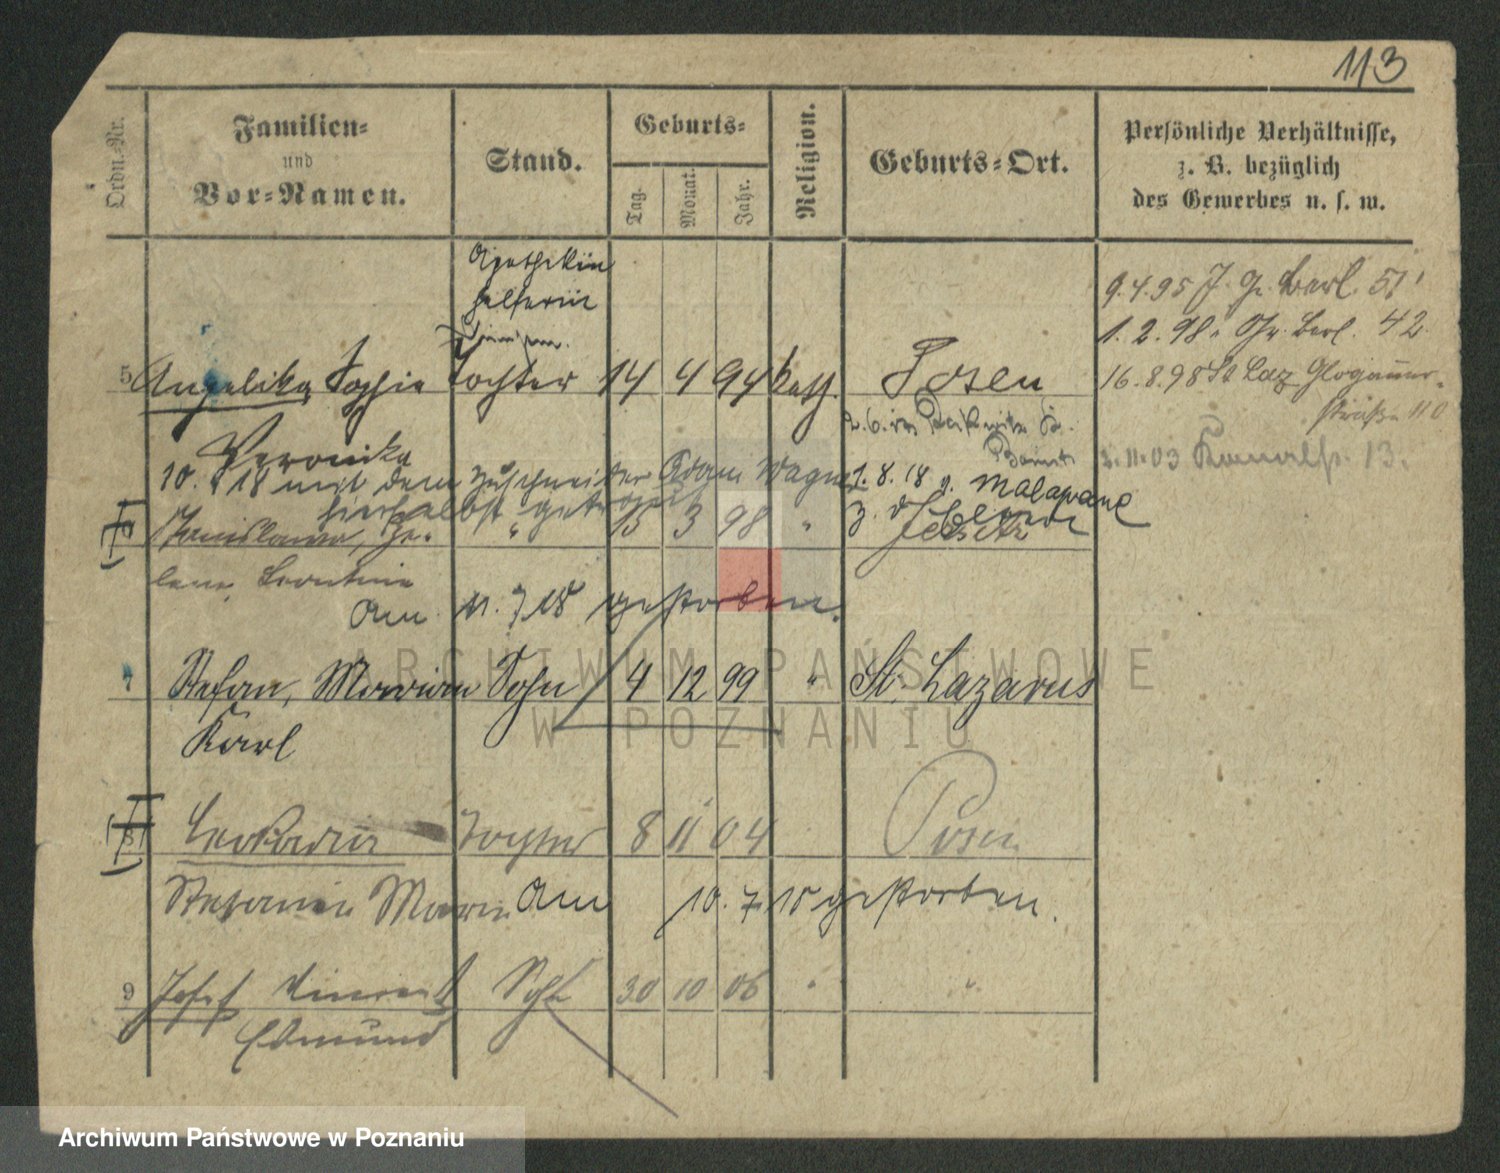 113
Ordn.-Nr.
Familien-
und
Vor-Namen.
Stand.
Geburts-
Tag.
Monat.
Jahr.
Religion.
Geburts-Ort.
Persönliche Verhältnisse,
z. B. bezüglich
des Gewerbes u. s. w.
9.4.95 Berl. 51
1.2.98. Gr. Berl. 42
5 Angelika Sophie Tochter 14 4 94 kath. Posen
16.8.98 St Laz Glogauer-
straße 110
Veronika
11.03 13.
10. 18 mit dem Zuschneider Adam Wagner 1.8.18 Malapane
hierselbst getraut
Stanislawa, He- " 15 3 98 "
lene, Leontine
Am 11.7.18 gestorben.
7 Stefan, Marian Sohn 4 12 99 " St. Lazarus
Karl
8 Leokadia Tochter 8 11 04 Posen
Stefania Maria Am 10.7.18 gestorben.
9 Josef Vincent Sohn 30 10 06 " "
Edmund
ARCHIWUM PAŃSTWOWE
W POZNANIU
Archiwum Państwowe w Poznaniu